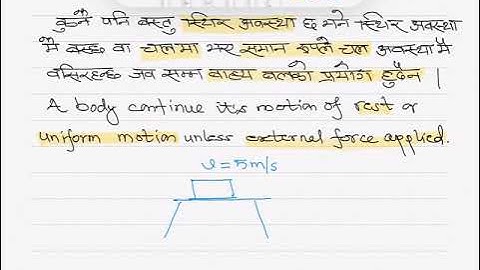 कुनै पनि वस्तु स्थिर अवस्था छ भने स्थिर अवस्था
मै बस्छ वा चालमा भए समान रुपले चल अवस्थामै
बसिरहन्छ जब सम्म बाह्य बलको प्रयोग हुदैन |
A body continue its motion of rest or
uniform motion unless external force applied.
v = 5m/s